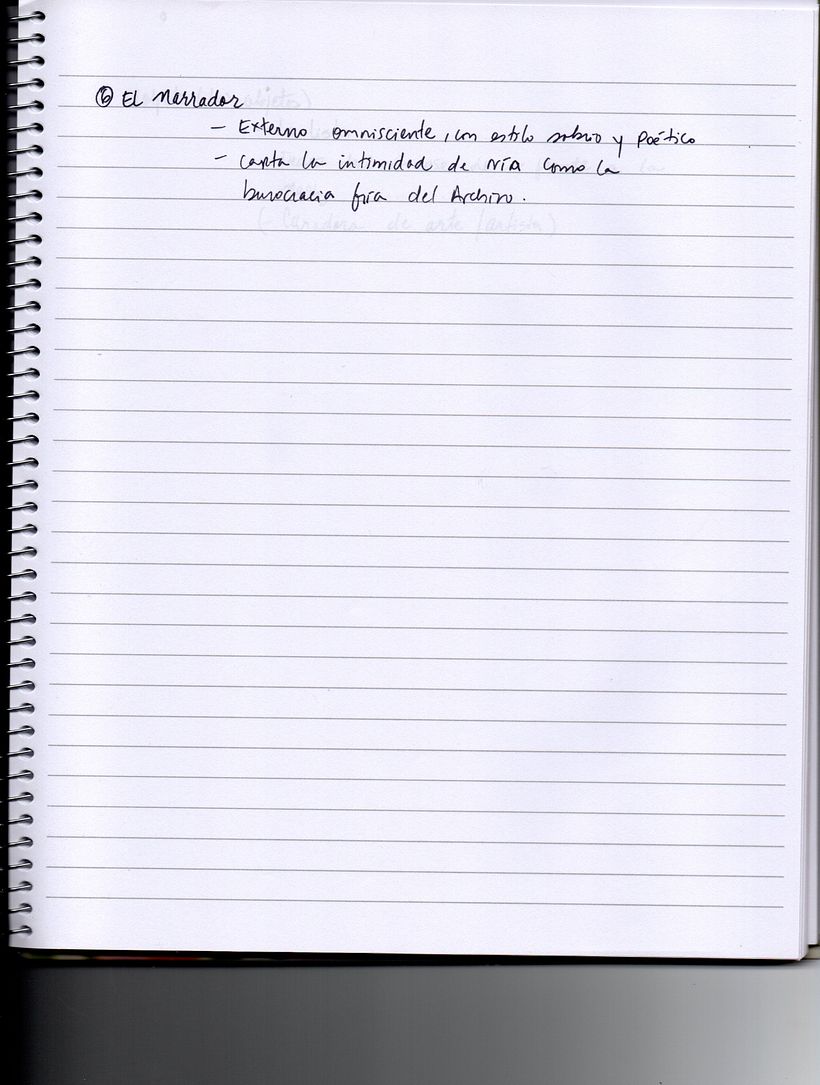 ⑥ El Narrador
– Externo omnisciente, con estilo sobrio y poético
– capta la intimidad de NÍA como la
burocracia fría del Archivo.